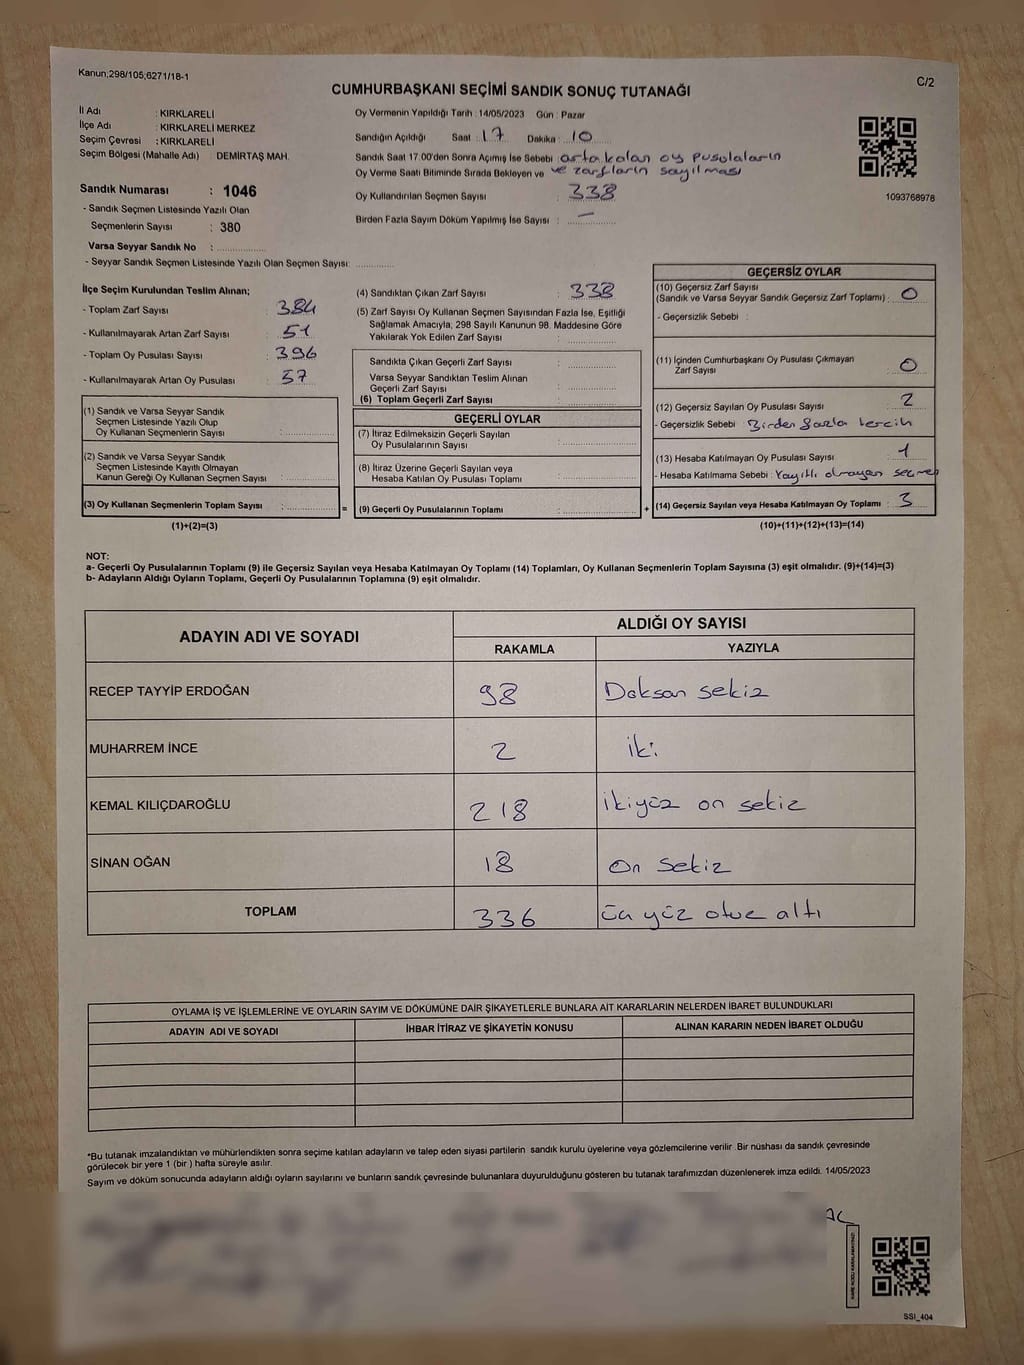 Kanun;298/105;6271/18-1
C/2
CUMHURBAŞKANI SEÇİMİ SANDIK SONUÇ TUTANAĞI
İl Adı : KIRKLARELİ
İlçe Adı : KIRKLARELİ MERKEZ
Seçim Çevresi : KIRKLARELİ
Seçim Bölgesi (Mahalle Adı) : DEMİRTAŞ MAH.
Sandık Numarası : 1046
- Sandık Seçmen Listesinde Yazılı Olan
Seçmenlerin Sayısı : 380
Varsa Seyyar Sandık No :
- Seyyar Sandık Seçmen Listesinde Yazılı Olan Seçmen Sayısı:
Oy Vermenin Yapıldığı Tarih : 14/05/2023 Gün : Pazar
Sandığın Açıldığı Saat : 17 Dakika : 10
Sandık Saat 17.00'den Sonra Açımış İse Sebebi : arta kalan oy pusulaların
Oy Verme Saati Bitiminde Sırada Bekleyen ve ve zarfların sayılması
Oy Kullandırılan Seçmen Sayısı : 338
Birden Fazla Sayım Döküm Yapılmış İse Sayısı : —
1093768978
İlçe Seçim Kurulundan Teslim Alınan;
- Toplam Zarf Sayısı : 384
- Kullanılmayarak Artan Zarf Sayısı : 51
- Toplam Oy Pusulası Sayısı : 396
- Kullanılmayarak Artan Oy Pusulası : 57
(1) Sandık ve Varsa Seyyar Sandık
Seçmen Listesinde Yazılı Olup
Oy Kullanan Seçmenlerin Sayısı :
(2) Sandık ve Varsa Seyyar Sandık
Seçmen Listesinde Kayıtlı Olmayan
Kanun Gereği Oy Kullanan Seçmen Sayısı :
(3) Oy Kullanan Seçmenlerin Toplam Sayısı :
(1)+(2)=(3)
=
(4) Sandıktan Çıkan Zarf Sayısı : 338
(5) Zarf Sayısı Oy Kullanan Seçmen Sayısından Fazla İse, Eşitliği
Sağlamak Amacıyla, 298 Sayılı Kanunun 98. Maddesine Göre
Yakılarak Yok Edilen Zarf Sayısı :
Sandıkta Çıkan Geçerli Zarf Sayısı :
Varsa Seyyar Sandıktan Teslim Alınan
Geçerli Zarf Sayısı :
(6) Toplam Geçerli Zarf Sayısı :
GEÇERLİ OYLAR
(7) İtiraz Edilmeksizin Geçerli Sayılan
Oy Pusulalarının Sayısı :
(8) İtiraz Üzerine Geçerli Sayılan veya
Hesaba Katılan Oy Pusulası Toplamı :
(9) Geçerli Oy Pusulalarının Toplamı :
+
GEÇERSİZ OYLAR
(10) Geçersiz Zarf Sayısı
(Sandık ve Varsa Seyyar Sandık Geçersiz Zarf Toplamı) : 0
- Geçersizlik Sebebi :
(11) İçinden Cumhurbaşkanı Oy Pusulası Çıkmayan
Zarf Sayısı : 0
(12) Geçersiz Sayılan Oy Pusulası Sayısı : 2
- Geçersizlik Sebebi : Birden fazla tercih
(13) Hesaba Katılmayan Oy Pusulası Sayısı : 1
- Hesaba Katılmama Sebebi : Kayıtlı olmayan seçmen
(14) Geçersiz Sayılan veya Hesaba Katılmayan Oy Toplamı : 3
(10)+(11)+(12)+(13)=(14)
NOT:
a- Geçerli Oy Pusulalarının Toplamı (9) ile Geçersiz Sayılan veya Hesaba Katılmayan Oy Toplamı (14) Toplamları, Oy Kullanan Seçmenlerin Toplam Sayısına (3) eşit olmalıdır. (9)+(14)=(3)
b- Adayların Aldığı Oyların Toplamı, Geçerli Oy Pusulalarının Toplamına (9) eşit olmalıdır.
ADAYIN ADI VE SOYADI ALDIĞI OY SAYISI
RAKAMLA YAZIYLA
RECEP TAYYİP ERDOĞAN 98 Doksan sekiz
MUHARREM İNCE 2 iki
KEMAL KILIÇDAROĞLU 218 ikiyüz on sekiz
SİNAN OĞAN 18 on sekiz
TOPLAM 336 üç yüz otuz altı
OYLAMA İŞ VE İŞLEMLERİNE VE OYLARIN SAYIM VE DÖKÜMÜNE DAİR ŞİKAYETLERLE BUNLARA AİT KARARLARIN NELERDEN İBARET BULUNDUKLARI
ADAYIN ADI VE SOYADI İHBAR İTİRAZ VE ŞİKAYETİN KONUSU ALINAN KARARIN NEDEN İBARET OLDUĞU
*Bu tutanak imzalandıktan ve mühürlendikten sonra seçime katılan adayların ve talep eden siyasi partilerin sandık kurulu üyelerine veya gözlemcilerine verilir. Bir nüshası da sandık çevresinde
görülecek bir yere 1 (bir ) hafta süreyle asılır.
Sayım ve döküm sonucunda adayların aldığı oyların sayılarını ve bunların sandık çevresinde bulunanlara duyurulduğunu gösteren bu tutanak tarafımızdan düzenlenerek imza edildi. 14/05/2023
SSI_404